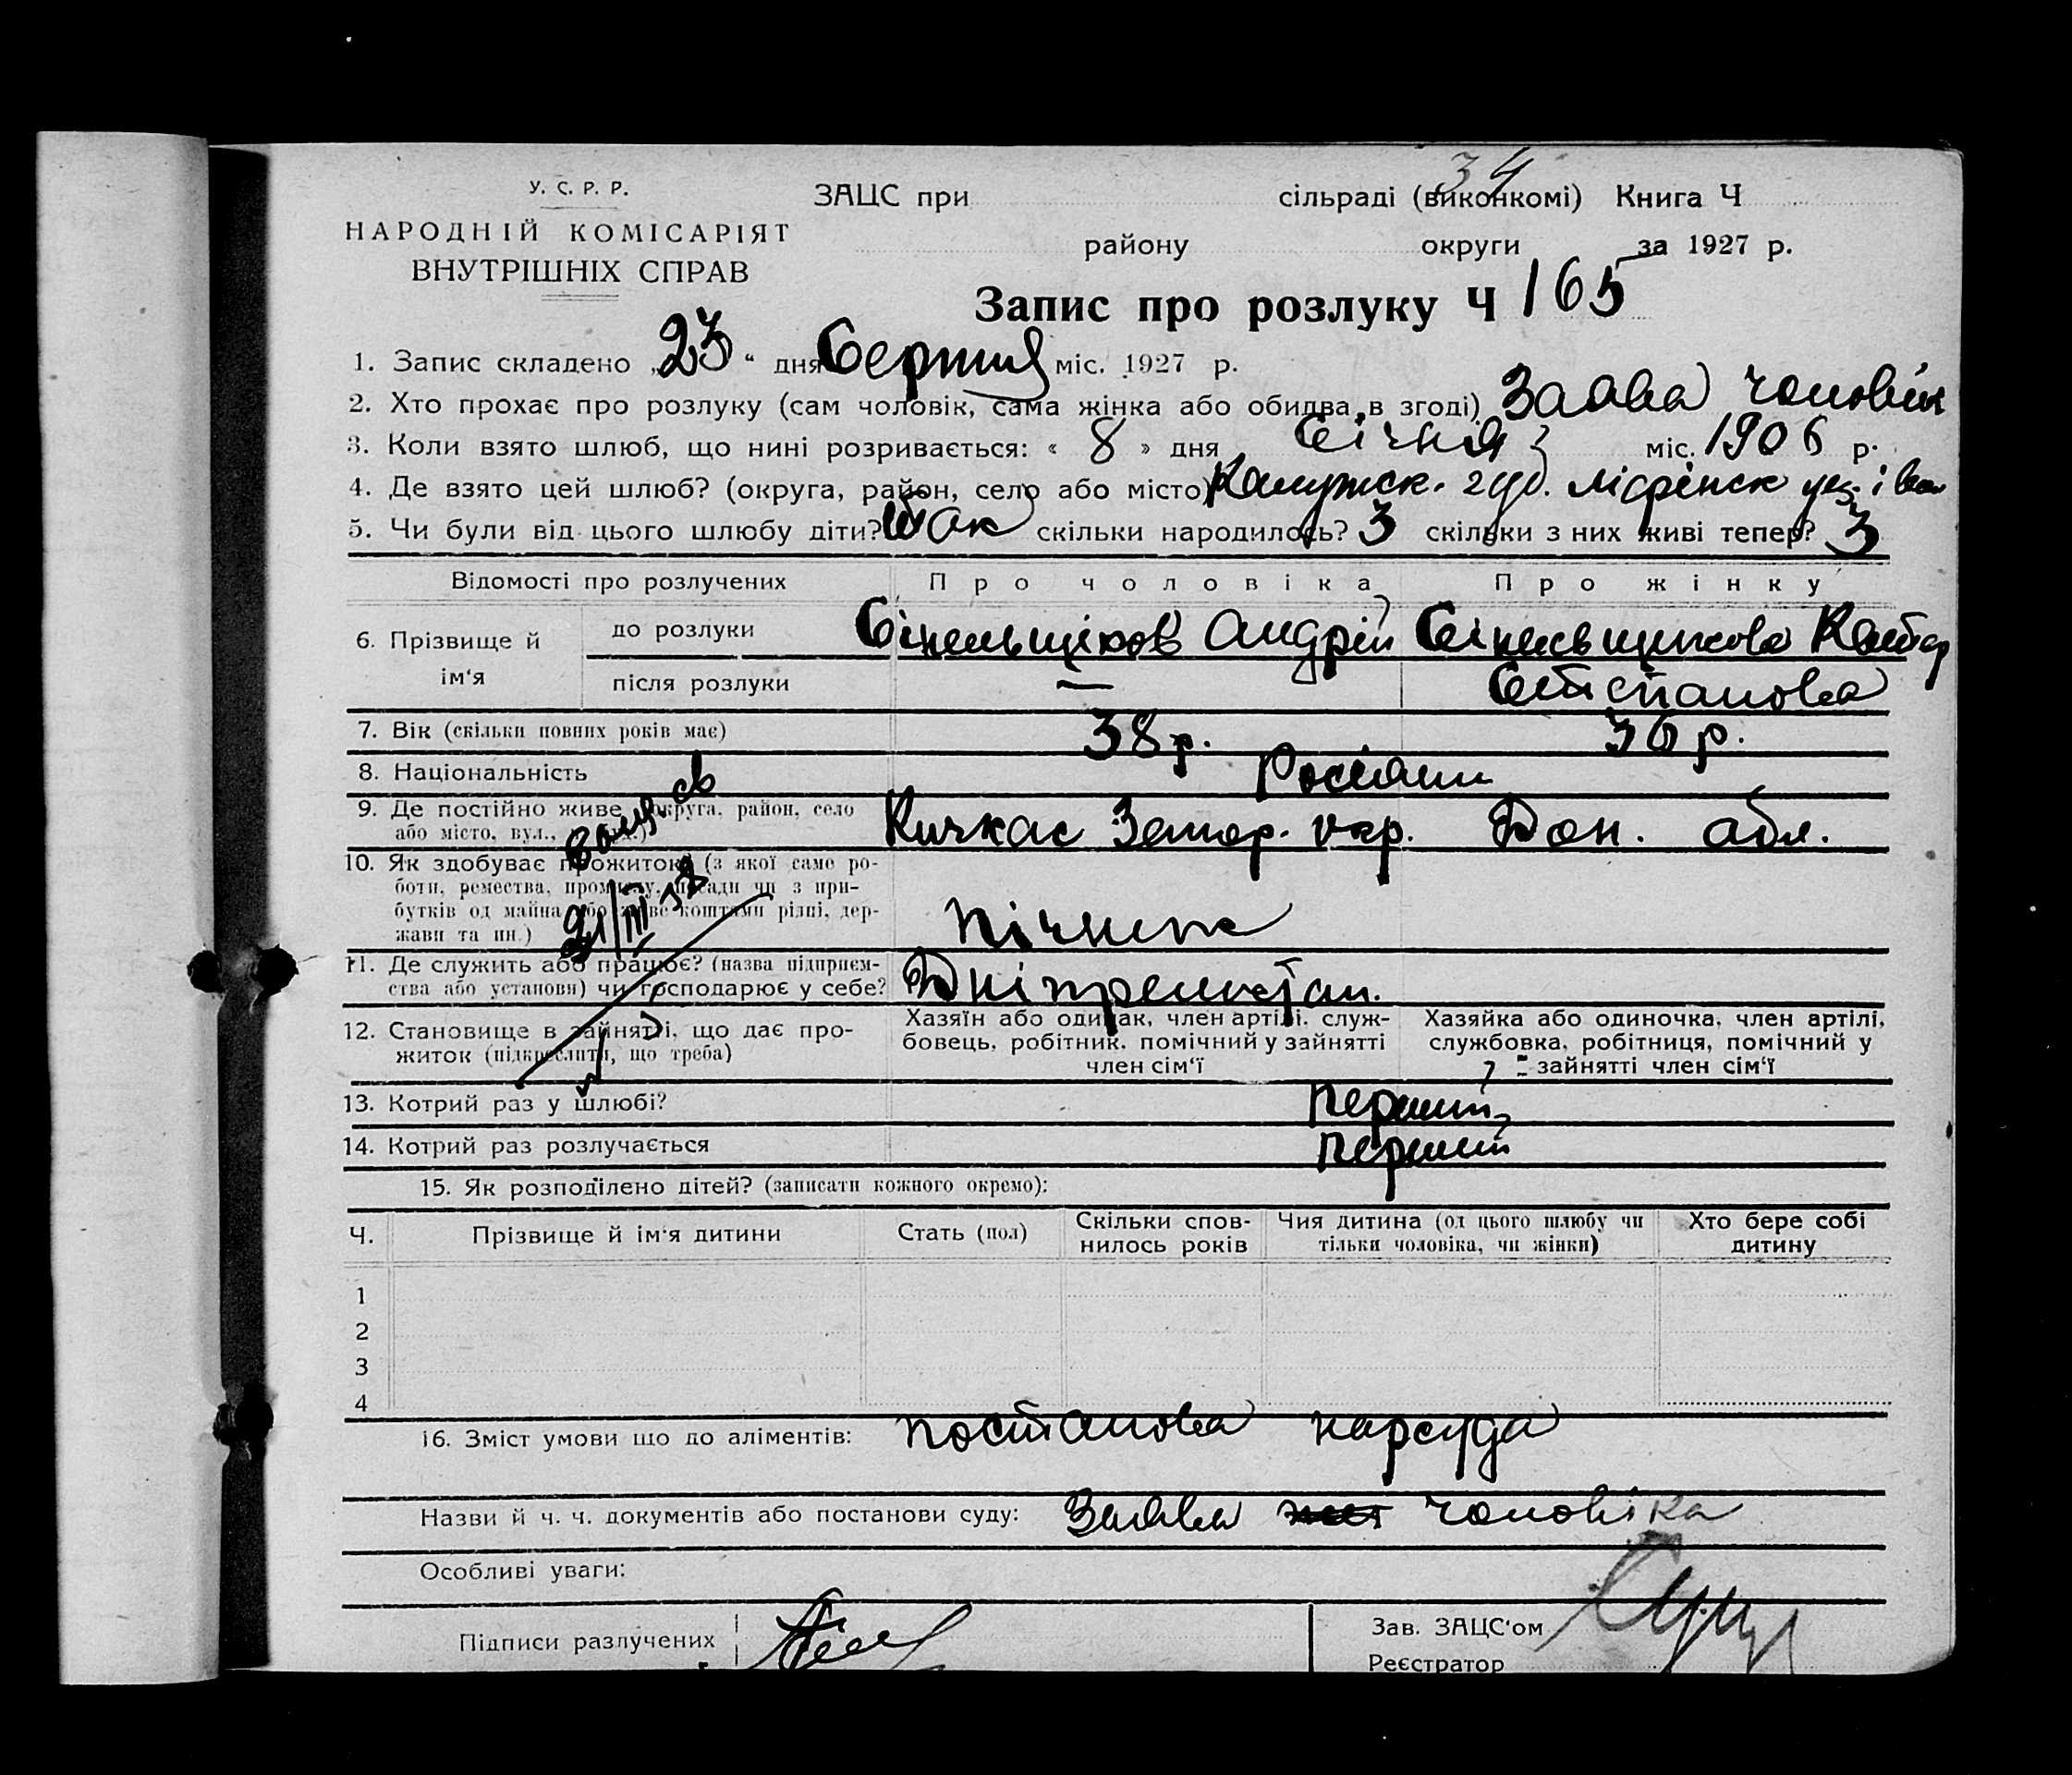 34
У. С. Р. Р.
НАРОДНІЙ КОМІСАРІЯТ
ВНУТРІШНІХ СПРАВ
ЗАЦС при сільраді (виконкомі) Книга Ч
району округи за 1927 р.
Запис про розлуку Ч 165
1. Запис складено „23“ дня Серпня міс. 1927 р.
2. Хто прохає про розлуку (сам чоловік, сама жінка або обидва в згоді) Заява чоловік
3. Коли взято шлюб, що нині розривається: « 8 » дня Січня міс. 1906 р.
4. Де взято цей шлюб? (округа, район, село або місто) Калужск. губ.
5. Чи були від цього шлюбу діти? Так скільки народилось? 3 скільки з них живі тепер? 3
Відомості про розлучених Про чоловіка Про жінку
6. Прізвище й ім‘я до розлуки Сінельщіков Андрій Сінельщикова Катер
після розлуки — Стєпанова
7. Вік (скільки повних років має) 38 р. 36 р.
8. Національність Росіяни
9. Де постійно живе округа, район, село Кичкас Запор. окр. Дон. обл.
або місто, вул.,
10. Як здобуває прожиток? (з якої саме ро-
боти, ремества, промислу, посади чи з при-
бутків од майна або живе коштами рідні, дер-
жави та ин.) пічник
21/III
11. Де служить або працює? (назва підприєм-
ства або установи) чи господарює у себе?
12. Становище в зайнятті, що дає про-
житок (підкреслити, що треба)
Хазяїн або одинак, член артілі, служ-
бовець, робітник, помічний у зайнятті
член сім‘ї
Хазяйка або одиночка, член артілі,
службовка, робітниця, помічний у
зайнятті член сім‘ї
13. Котрий раз у шлюбі? перший
14. Котрий раз розлучається перший
15. Як розподілено дітей? (записати кожного окремо):
Ч. Прізвище й ім‘я дитини Стать (пол) Скільки спов-
нилось років Чия дитина (од цього шлюбу чи
тільки чоловіка, чи жінки) Хто бере собі
дитину
1
2
3
4
16. Зміст умови що до аліментів: постанова нарсуда
Назви й ч. ч. документів або постанови суду: Заява чоловіка
Особливі уваги:
Підписи разлучених
Зав. ЗАЦС‘ом
Реєстратор